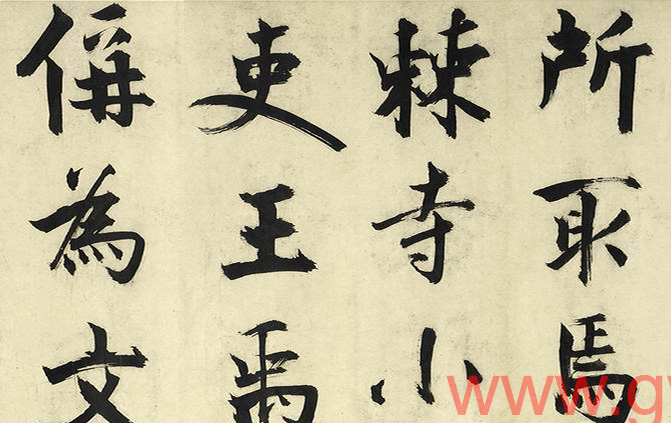 所取焉
棘寺小
吏王禹
偁為文
www.g